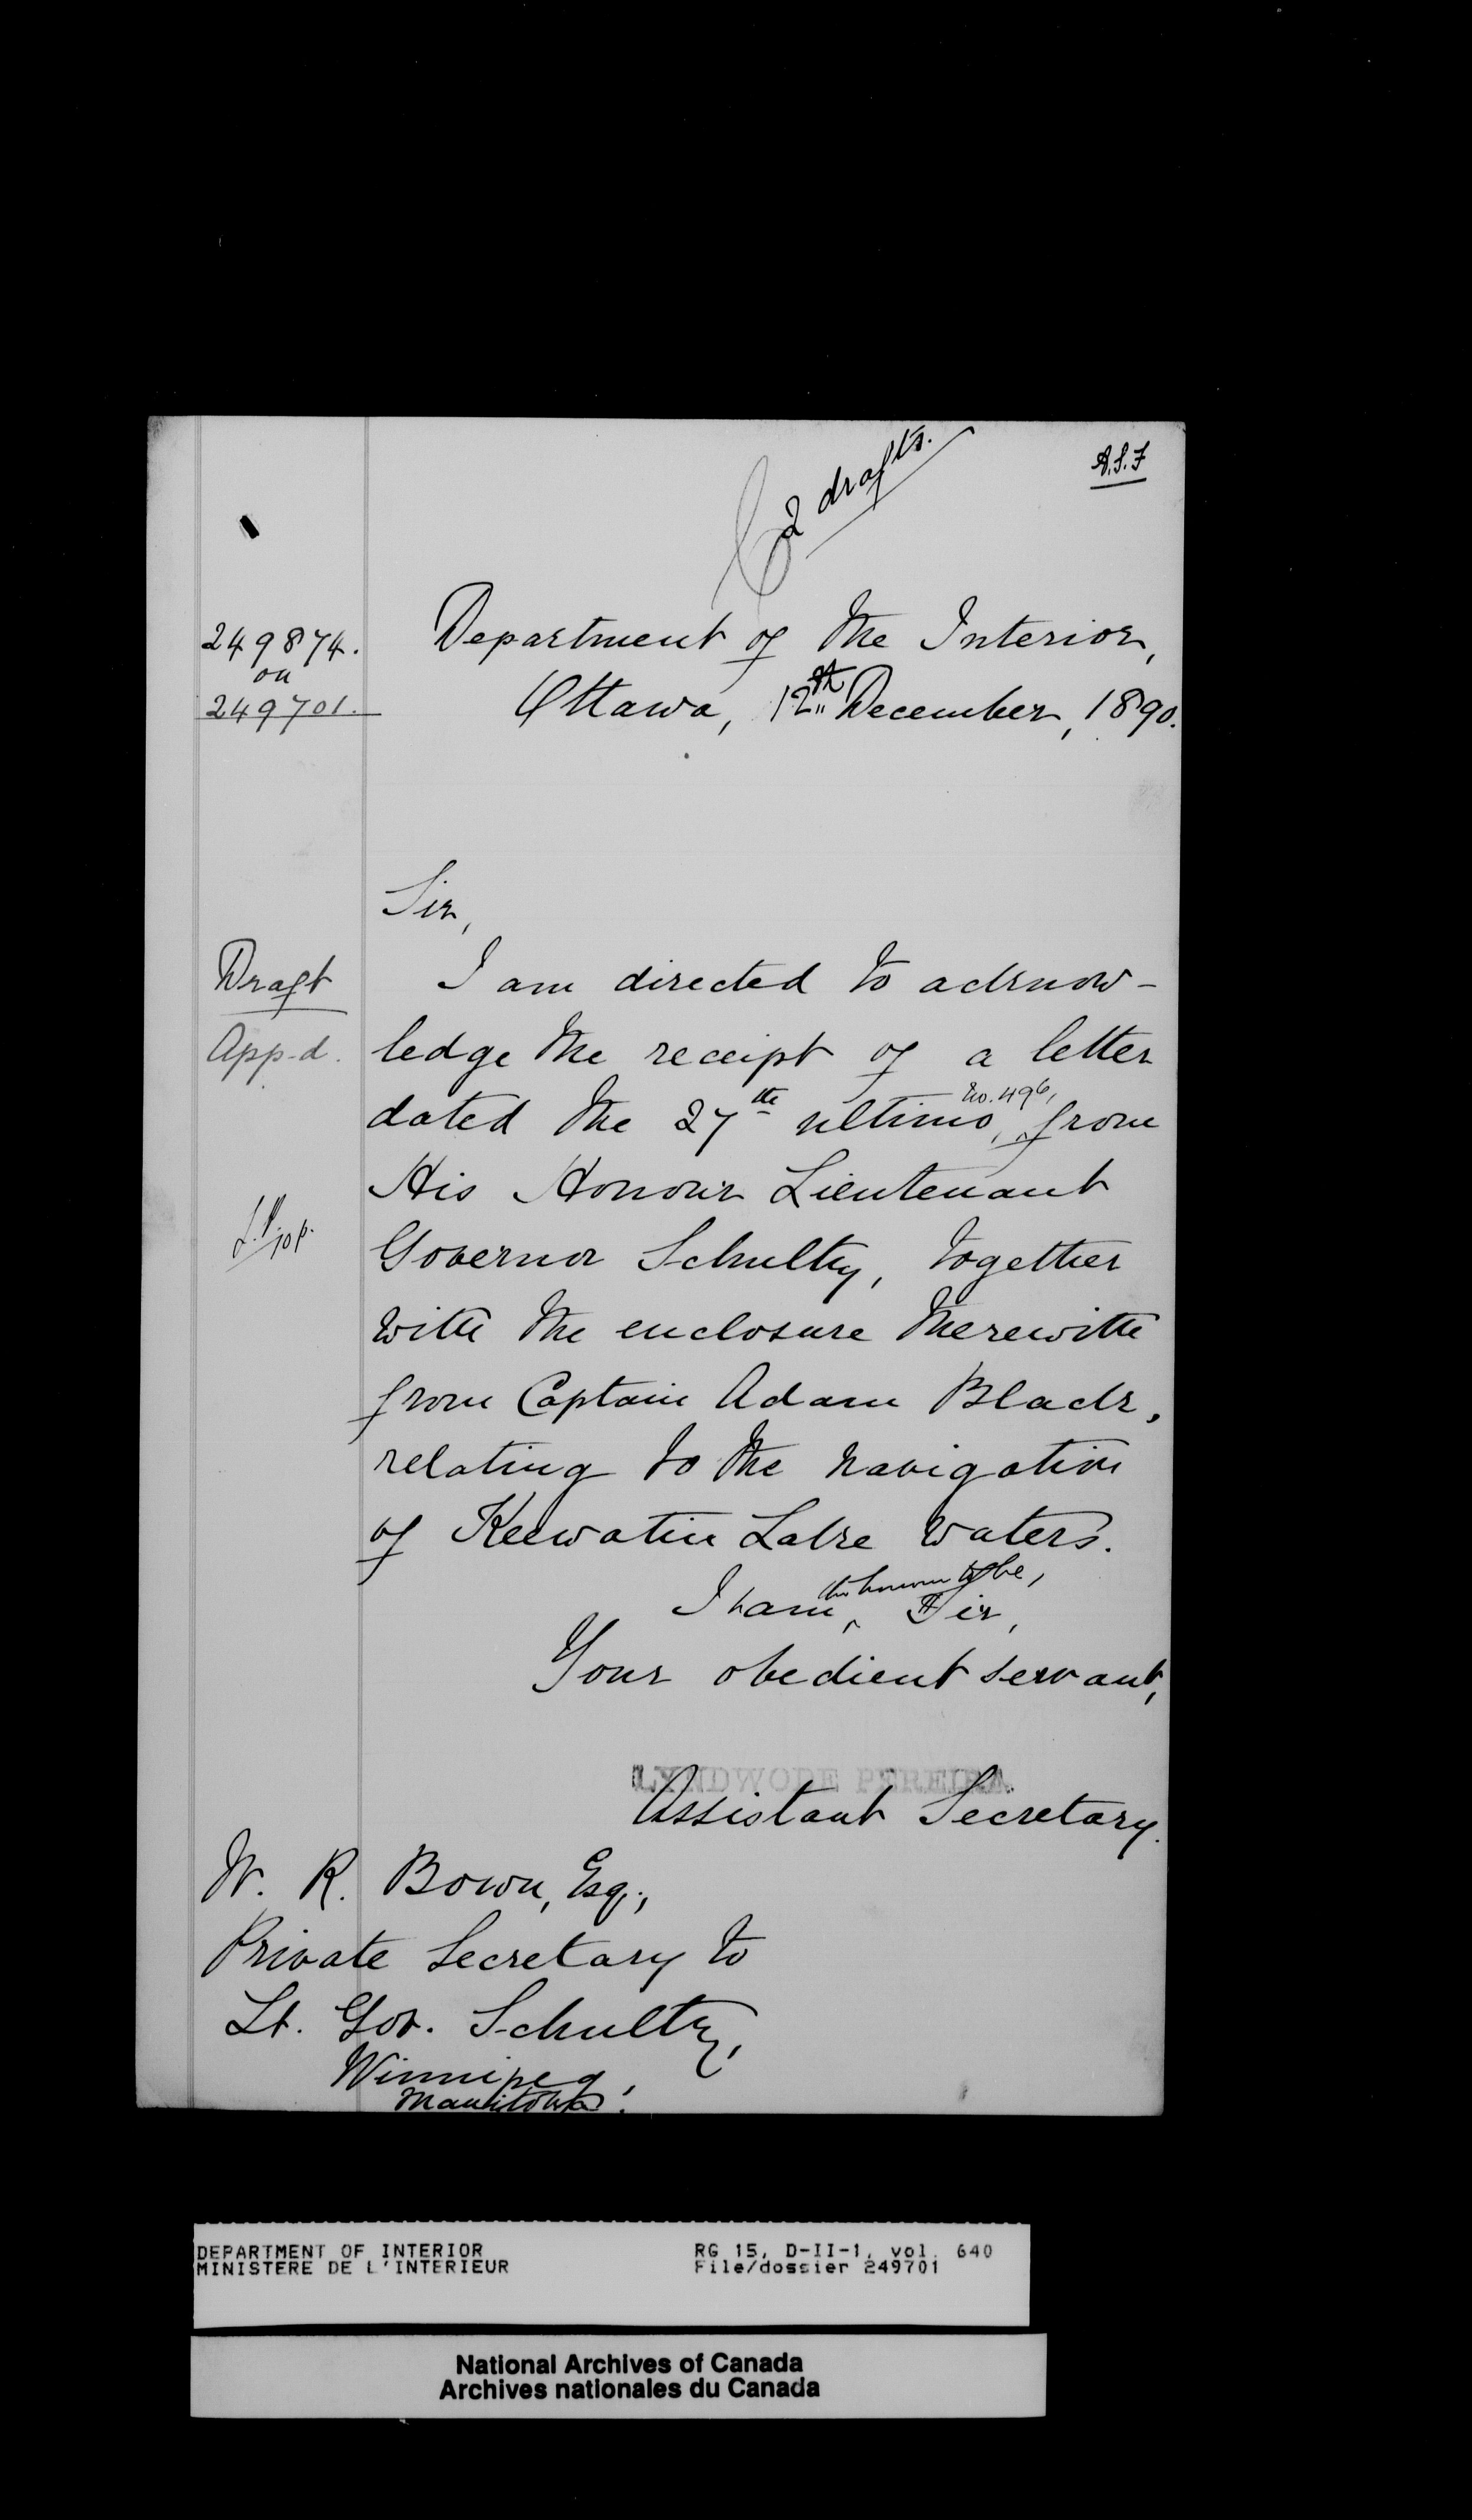 2 drafts.
A.S.F
249874.
on
249701.
Department of the Interior,
Ottawa, 12th December, 1890.
Sir,
Draft
App-d.
I am directed to acknow-
ledge the receipt of a letter
dated the 27th ultimo, No. 496, from
His Honour Lieutenant
Governor Schultz, together
with the enclosure therewith
from Captain Adam Black,
relating to the navigation
of Keewatin Lake waters.
I have the honour to be, Sir,
Your obedient servant,
LYNDWODE PEREIRA
Assistant Secretary.
W. R. Bown, Esq.,
Private Secretary to
Lt. Gov. Schultz,
Winnipeg,
Manitoba.
DEPARTMENT OF INTERIOR
MINISTERE DE L'INTERIEUR
RG 15, D-II-1, vol. 640
File/dossier 249701
National Archives of Canada
Archives nationales du Canada